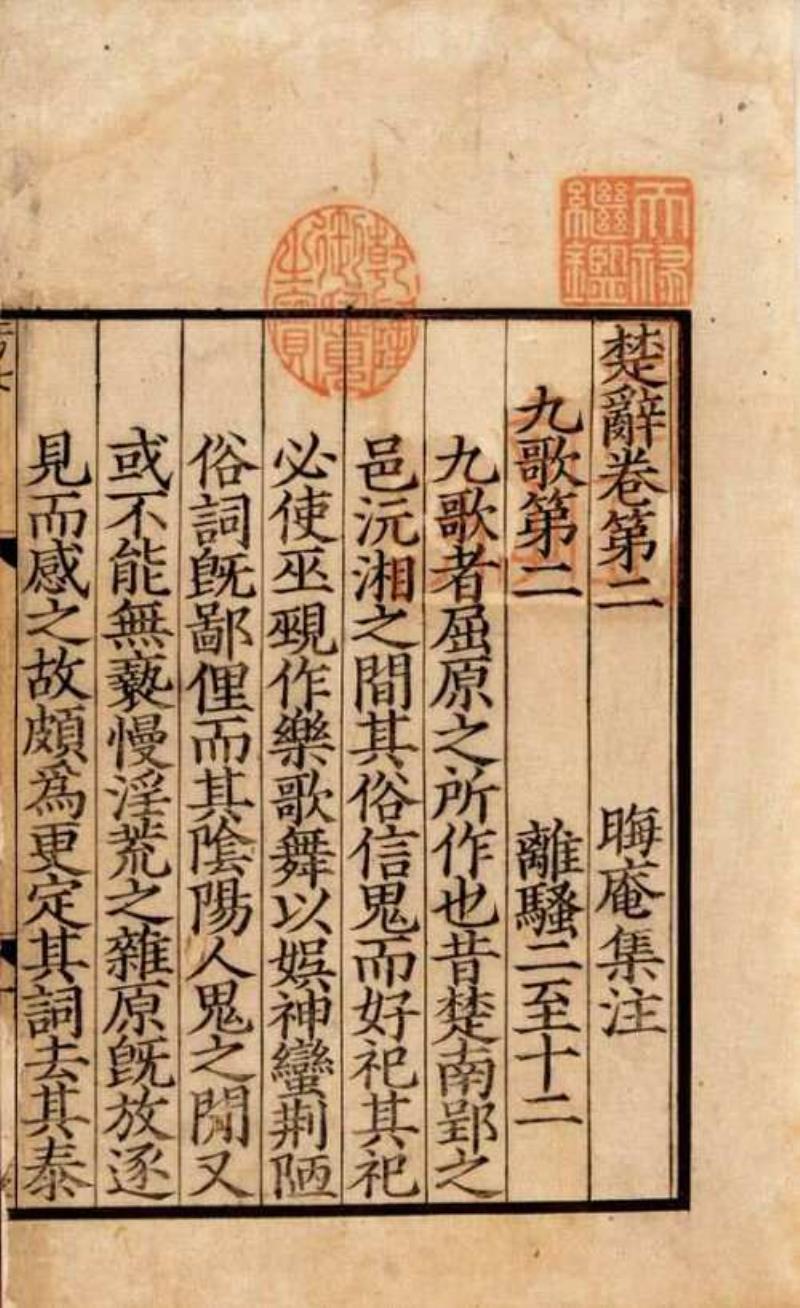 楚辭卷第二 晦庵集注
九歌第二 離騷二至十二
九歌者屈原之所作也昔楚南郢之
邑沅湘之間其俗信鬼而好祀其祀
必使巫覡作樂歌舞以娛神蠻荆陋
俗詞旣鄙俚而其陰陽人鬼之間又
或不能無褻慢淫荒之雜原旣放逐
見而感之故頗為更定其詞去其泰
天祿繼鑑
乾隆御覽之寶